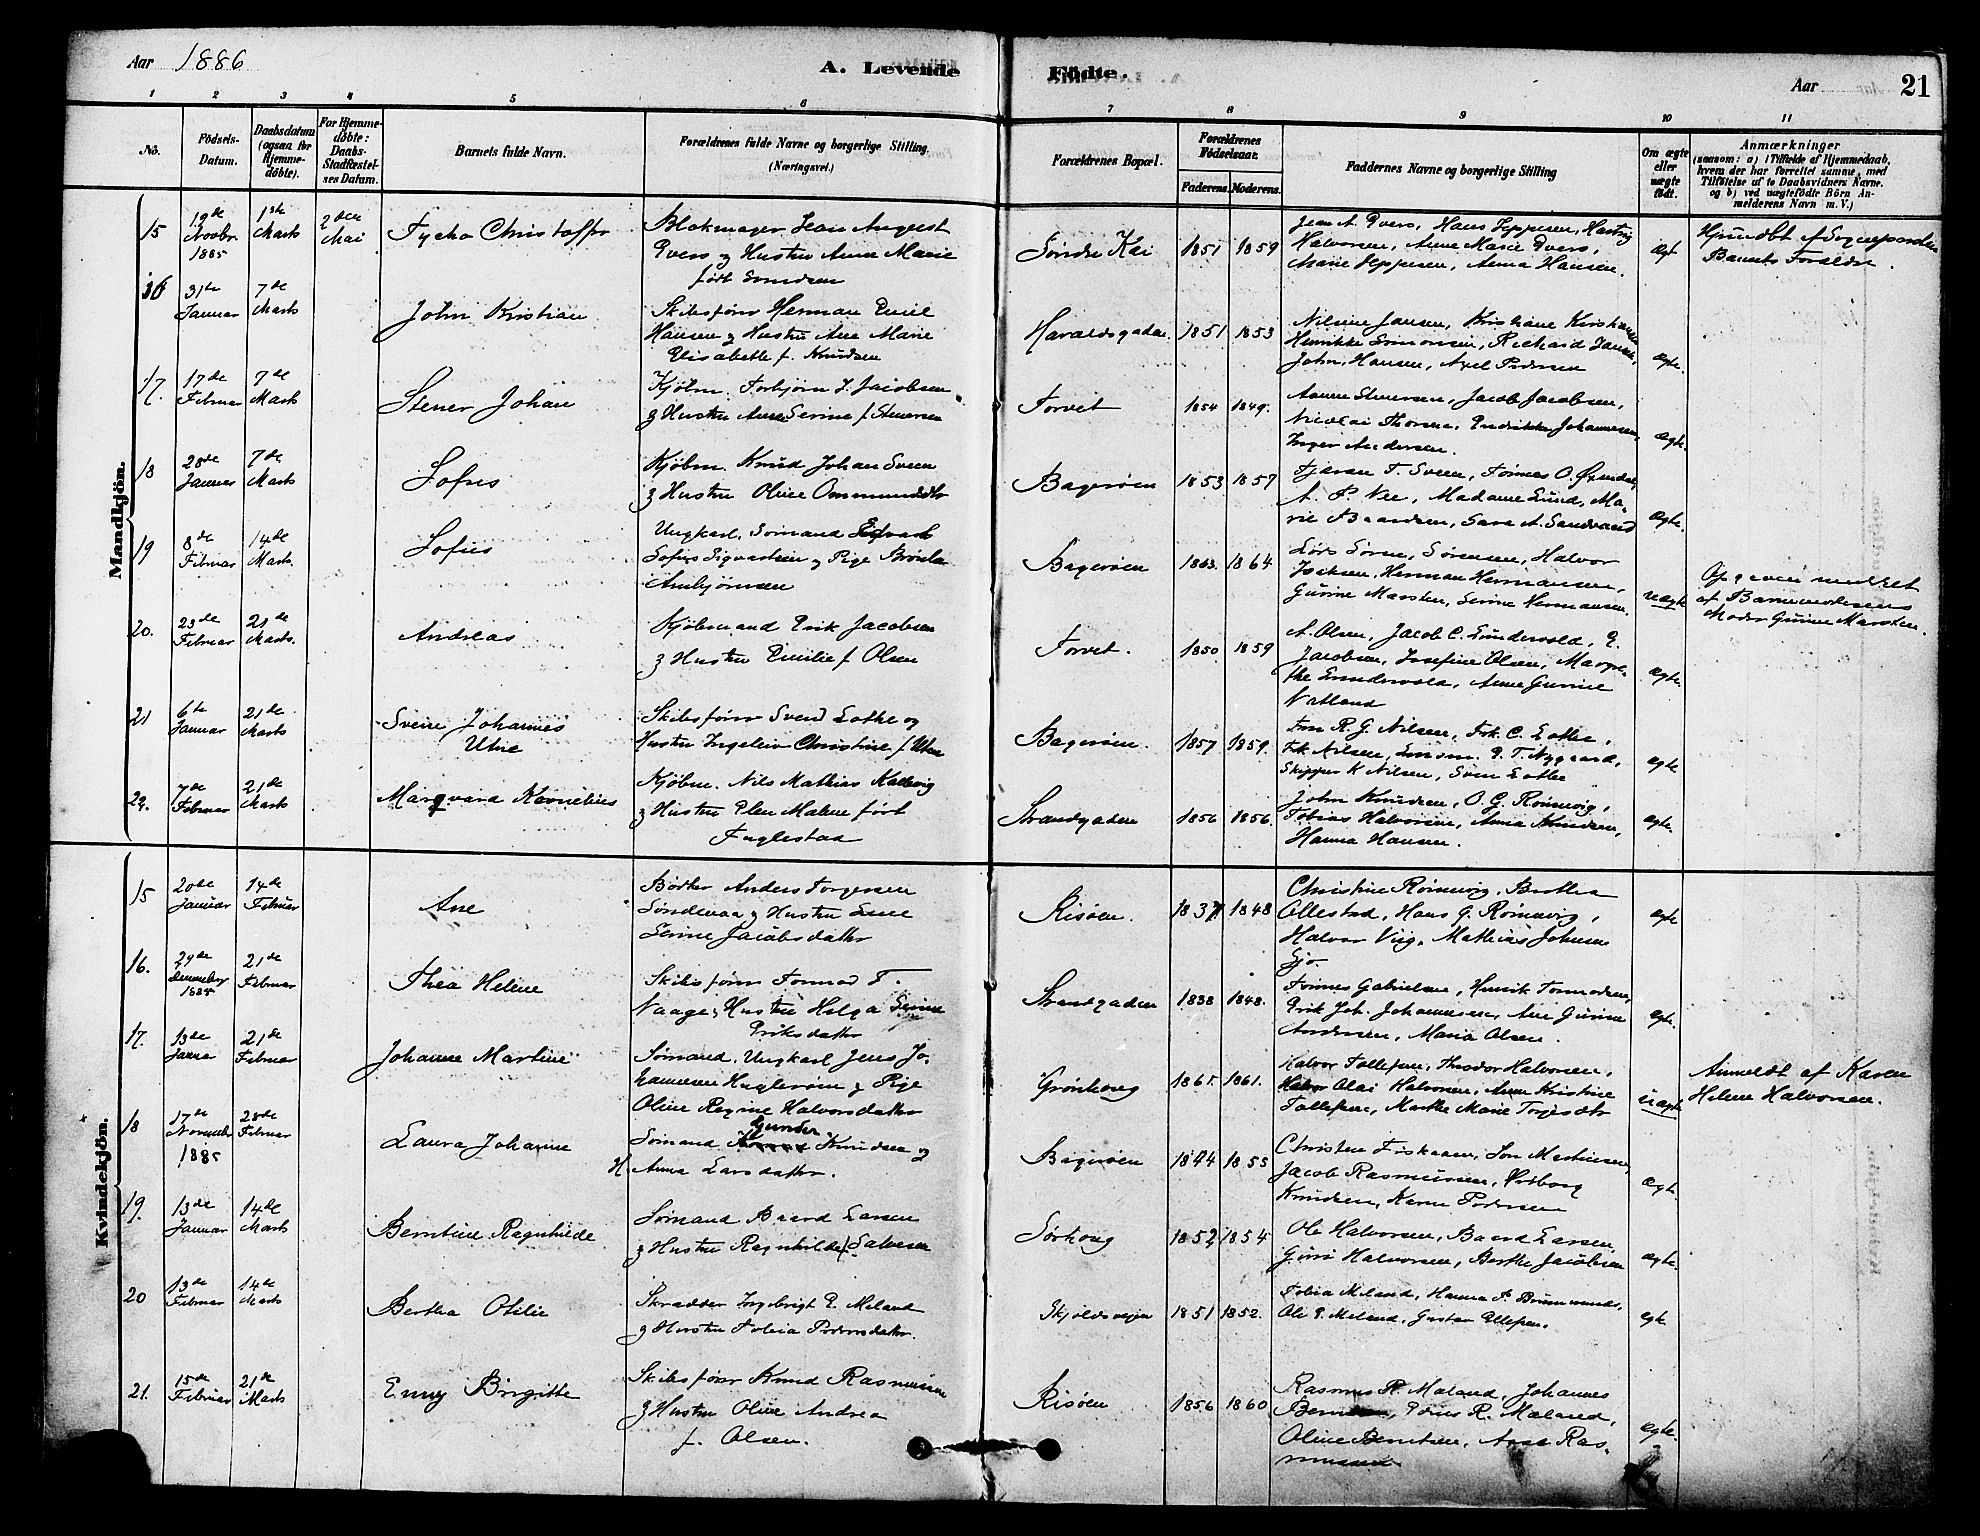 Aar 1886
A. Levende Födte.
Aar
21
1 2 3 4 5 6 7 8 9 10 11
No.
Födsels-Datum.
Daabsdatum (ogsaa for Hjemme-döbte).
For Hjemme-döbte: Daabs-Stadfæstel-ses Datum.
Barnets fulde Navn.
Forældrenes fulde Navne og borgerlige Stilling
(Næringsvei.)
Forældrenes Bopæl.
Forældrenes Födselsaar.
Faderens. Moderens.
Faddernes Navne og borgerlige Stilling
Om ægte eller uægte födt.
Anmærkninger
(saasom: a) i Tilfælde af Hjemmedaab, hvem der har forrettet samme, med Tilföielse af to Daabsvidners Navne, og b) ved uægtefödte Börn An-melderens Navn m. V.)
Mandkjön.
15 19de Novbr. 1885 1ste Marts 2den Mai Tycho Christoffer
Blokmager Jean August
Evers og Hustru Anne Marie
født
Søndre Kai 1851 1859
Jean A. Evers, Hans Jeppesen, Hartvig
Halvorsen, Anne Marie Evers,
Marie Jeppesen, Anna Hansen.
Ægt
Barnets Forældre.
16 31te Januar 7de Marts John Kristian
Skibsfører Herman Emil
Hansen og Hustru Ane Marie
Elisabeth f. Knudsen
Haraldsgaden 1851 1853
Nilsine Jansen, Kristiane
Henrikke Simonsen, Richard Jansen,
John Hansen, Axel Pedersen
Ægte.
17. 17de Februar 7de Marts Stener Johan
Kjøbm. Torbjørn J. Jacobsen
& Hustru Anne Serine f. Stenersen
Torvet 1854 1849.
Stenersen, Jacob Jacobsen,
Nicolai Thorsen, Johannesen,
Inger Andersen.
Ægte.
18 28de Januar 7de Marts Sofus
Kjøbm. Knud Johan Sveen
& Hustru Oline Ommundsdtr
Bagerøen 1853 1857
T. Sveen, Tønnes O.
A. P. Madame Lund, Ma-
rie Baardsen, Sara A. Sandvand
Ægte.
19 8de Februar 14de Marts. Sofus
Ungkarl, Sømand Edvard
Sofus Sigvartsen og Pige
Bagerøen 1863. 1864
Lars Sørensen, Halvor
Isaksen, Herman Hermansen,
Gurine Marsten, Serine Hermansen.
uægte
Opgaven meddelt
af Barnemoderens
Moder Gurine Marsten.
20. 23de Februar 21de Marts. Andreas
Kjøbmand Erik Jacobsen
& Hustru Emilie f. Olsen
Torvet. 1850 1859
A. Olsen, Jacob C. Lundervold, E.
Jacobsen, Josefine Olsen, Margre-
the Lundervold, Anne Gurine
Natland
Ægte.
21 6te Januar 21de Marts Svein Johannes
Utne
Skibsfører Svend Lothe og
Hustru Ingeleiv Christine f. Utne
Bagerøen. 1857 1859.
R. G. Nilsen, Frk. C. Lothe,
Frk. Nilsen, E. T. Nygaard,
Skipper K. Nilsen, Sven Lothe
Ægte
22. 7de Februar 21de Marts Marqvard Kornelius
Kjøbm. Nils Mathias Kallevig
& Hustru Elen Malene født
Fuglestad
Strandgaden 1856 1856.
John Knudsen, O. G. Rønnevig,
Tobias Halvorsen, Anna Knudsen,
Hanna Hansen.
Ægte.
Kvindekjön.
15 20de Januar 14de Februar Ane
Bødker Anders Torgersen
Søndenaa & Hustru Lene
Serine Jacobsdatter
Risøen. 1837 1848
Christine Rønnevig, Berthea
Ollestad, Hans G. Rønnevig,
Halvor Viig, Mathias Johnsen
Gjo.
Ægte
16. 29de Desember 1885 21de Februar Thea Helene
Skibsfører Tormod T.
Naage & Hustru Helga Serine
Eriksdatter
Strandgaden 1838 1848.
Tønnes Gabrielsen, Henrik Tormodsen,
Erik Joh. Johannesen, Ane Gurine
Andersen, Maria Olsen.
Ægte.
17. 13de Januar 21de Februar Johanne Martine
Sømand, Ungkarl Jens Jo-
hannesen & Pige
Oline Regine Halvorsdatter
Grønhoug 1865. 1861.
Halvor Tollefsen, Theodor Halvorsen,
Olai Halvorsen, Anne Kristine
Tollefsen, Marthe Marie Torjesdtr
uægte
Anmeldt af Karen
Helene Halvorsen.
18 17de November 1885 28de Februar Laura Johanne
Gunder
Sømand Knudsen og
H. Anna Larsdatter.
Bagerøen 1844 1855
Christen Fiskaaen, Martinsen,
Jacob Rasmussen, Vilborg
Knudsen, Karen Pedersen
Ægte.
19. 13de Januar 14de Marts Berntine Ragnhilde
Sømand Baard Larsen
& Hustru Ragnhilde f. Salvesen
Sørhoug 1852 1854
Ole Halvorsen, Baard Larsen,
Guri Halvorsen, Berthe Jacobsen
Ægte.
20 13de Februar 14de Marts Bertha Otilie
Skrædder Ingebrigt E. Meland
& Hustru Tobia Pedersdatter.
Skjoldsveien 1851 1852.
Tobia Meland, Hanna
Ole E. Meland, Gustav Ellefsen.
Ægte
21. 15de Februar 21de Marts Enny Birgitte
Skibsfører Knud Rasmussen
& Hustru Oline Andrea
f. Olsen.
Risøen 1856 1860
Rasmus R. Mæland, Johannes
Berntsen, R. Mæland,
Oline Berntsen, Anna Ras-
mussen
Ægte.